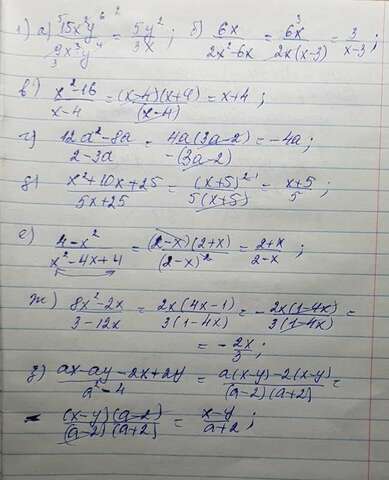 1) а) 15x²y⁶/9x³y⁴ = 5y²/3x ; б) 6x/2x²-6x = 6x/2x(x-3) = 3/x-3 ;
в) x²-16/x-4 = (x-4)(x+4)/(x-4) = x+4 ;
г) 12a²-8a/2-3a = 4a(3a-2)/-(3a-2) = -4a ;
д) x²+10x+25/5x+25 = (x+5)²/5(x+5) = x+5/5 ;
е) 4-x²/x²-4x+4 = (2-x)(2+x)/(2-x)² = 2+x/2-x ;
ж) 8x²-2x/3-12x = 2x(4x-1)/3(1-4x) = -2x(1-4x)/3(1-4x) =
= -2x/3 ;
з) ax-ay-2x+2y/a²-4 = a(x-y)-2(x-y)/(a-2)(a+2) =
= (x-y)(a-2)/(a-2)(a+2) = x-y/a+2 ;